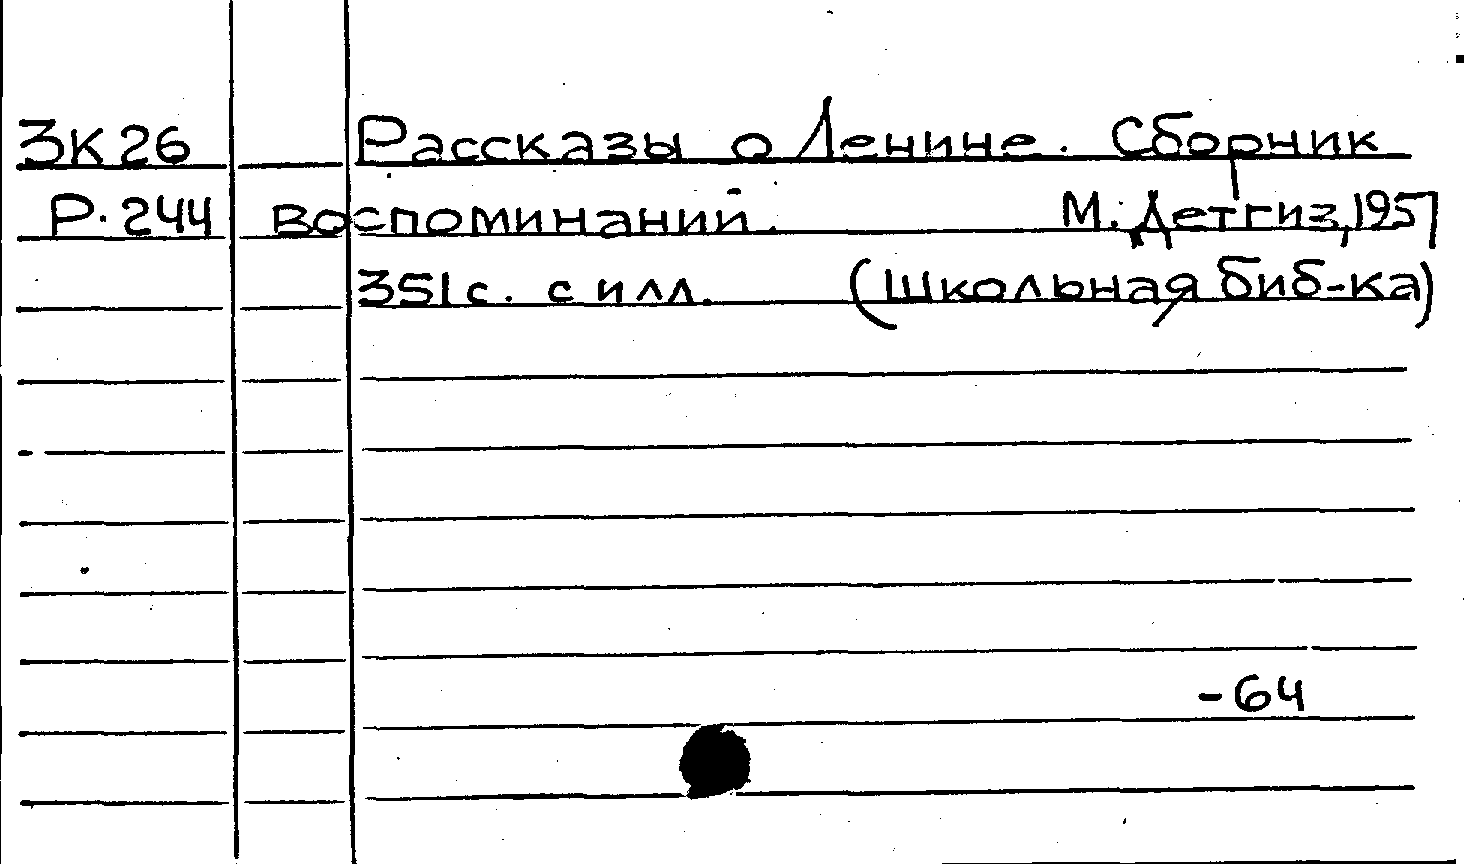 3К26 Рассказы о Ленине. Сборник
Р.244 воспоминаний. М. Детгиз, 1957
351с. с илл. (Школьная биб-ка)
-64